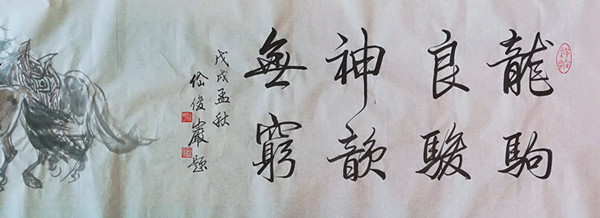 龍駒
良駿
神韻
無窮
戊戌孟秋
徐俊巖題